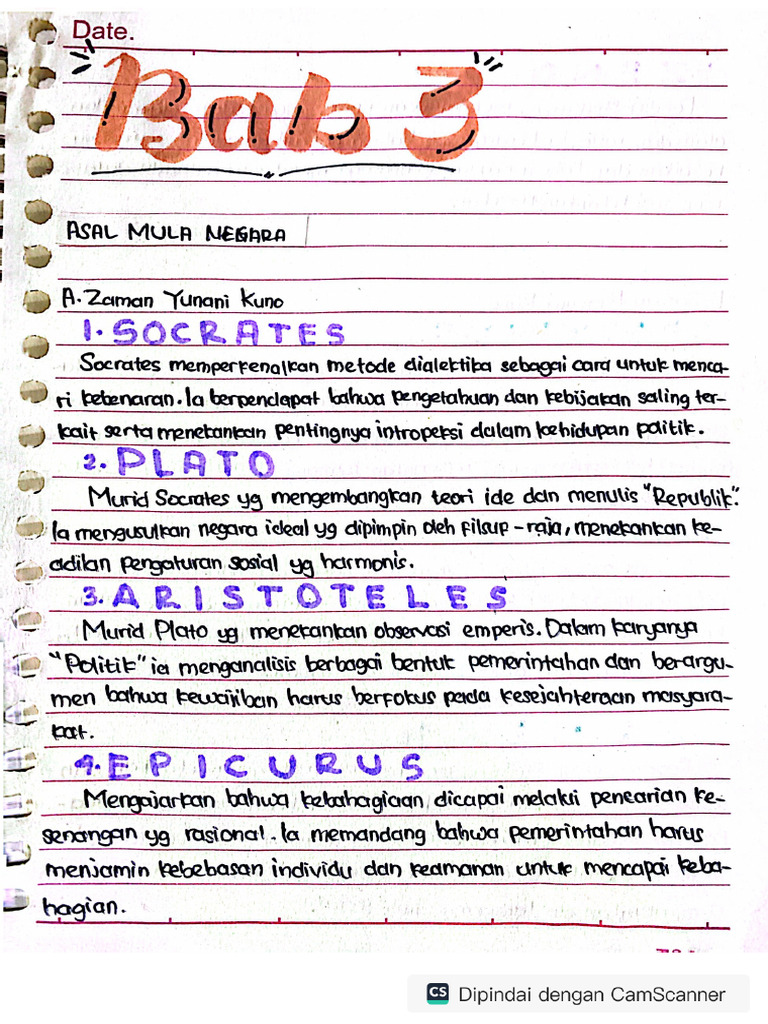 Date.
Bab 3
ASAL MULA NEGARA
A. Zaman Yunani Kuno
1. SOCRATES
Socrates memperkenalkan metode dialektika sebagai cara untuk menca-
ri kebenaran. Ia berpendapat bahwa pengetahuan dan kebijakan saling ter-
kait serta menekankan pentingnya intropeksi dalam kehidupan politik.
2. PLATO
Murid Socrates yg mengembangkan teori ide dan menulis "Republik".
Ia mengusulkan negara ideal yg dipimpin oleh filsup-raja, menekankan ke-
adilan pengaturan sosial yg harmonis.
3. ARISTOTELES
Murid Plato yg menekankan observasi emperis. Dalam karyanya
"Politik" ia menganalisis berbagai bentuk pemerintahan dan berargu-
men bahwa kewajiban harus berfokus pada kesejahteraan masyara-
kat.
4. EPICURUS
Mengajarkan bahwa kebahagiaan dicapai melalui pencarian ke-
senangan yg rasional. Ia memandang bahwa pemerintahan harus
menjamin kebebasan individu dan keamanan untuk mencapai keba-
hagian.
CS Dipindai dengan CamScanner